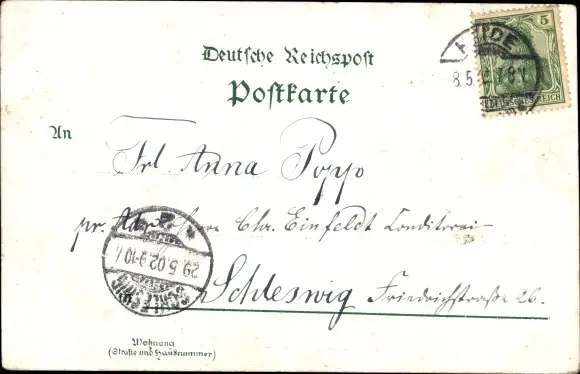 5
HEIDE
DEUTSCHES REICH
Deutsche Reichspost
Postkarte
An
Frl Anna Popp
pr. Adr. Herr Chr. Einfeldt Conditorei
Schleswig Friedrichstraße 26.
SCHLESWIG
29.5.02.9-10
Wohnung
(Straße und Hausnummer)